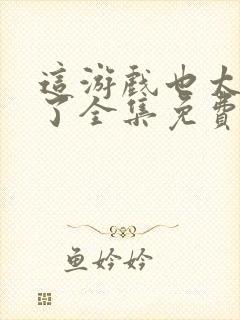 這游戲也太
了全集免費
鱼妗妗